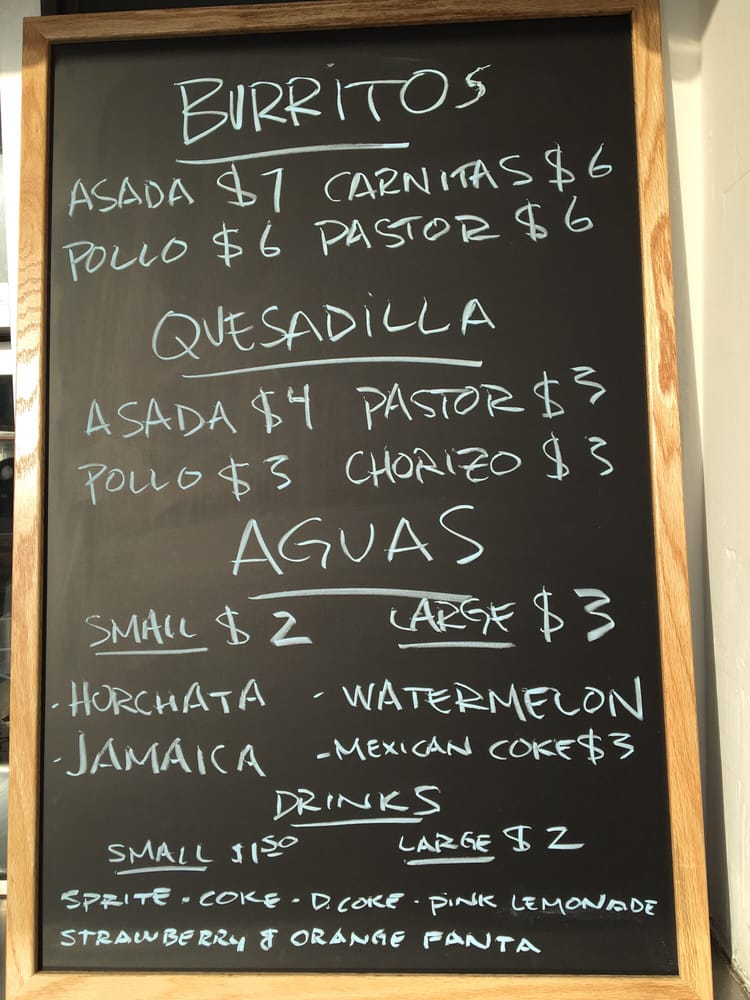 BURRITOS
ASADA $7 CARNITAS $6
POLLO $6 PASTOR $6
QUESADILLA
ASADA $4 PASTOR $3
POLLO $3 CHORIZO $3
AGUAS
SMALL $2 LARGE $3
- HORCHATA - WATERMELON
- JAMAICA - MEXICAN COKE $3
DRINKS
SMALL $1.50 LARGE $2
SPRITE - COKE - D. COKE - PINK LEMONADE
STRAWBERRY & ORANGE FANTA